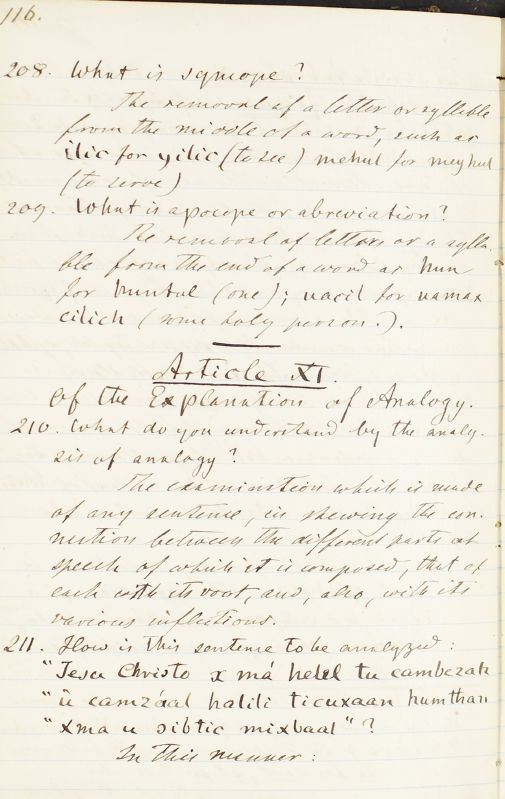 116.
208. What is syncope?
The removal of a letter or syllable
from the middle of a word, such as
ilic for yilic (to see) mehul for meyhul
(to serve)
209. What is apocope or abreviation?
The removal of letters or a sylla-
ble from the end of a word as hun
for huntul (one); uacil for uamax
cilich (some holy person.).
Article XI.
Of the Explanation of Analogy.
210. What do you understand by the analy-
sis of analogy?
The examination which is made
of any sentence, in shewing the con-
nection between the different parts of
speech of which it is composed, that of
each with its root, and, also, with its
various inflections.
211. How is this sentence to be analyzed:
"Jesu Christo x má helel tu cambezah
"ù camzáal halili ticuxaan humthan
"xma u sibtic mixbaal"?
In this manner: